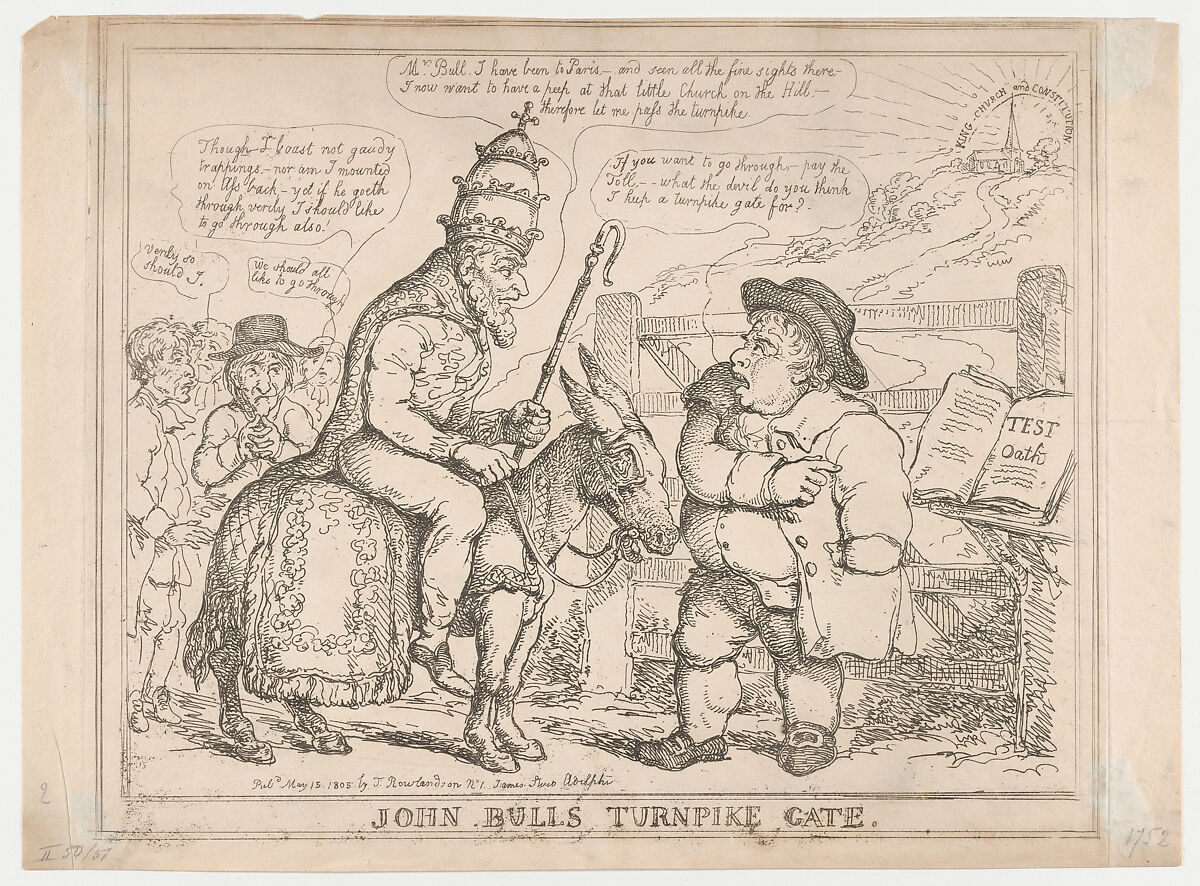 Mr. Bull. I have been to Paris – and seen all the fine sights there –
I now want to have a peep at that little Church on the Hill. –
therefore let me pass the turnpike
KING CHURCH and CONSTITUTION
Though I boast not gaudy
trappings, – nor am I mounted
on Ass back – yet if he goeth
through, verily I should like
to go through also!
If you want to go through – pay the
Toll – – what the devil do you think
I keep a turnpike gate for?
Verily so
should I.
We should all
like to go through
TEST
Oath
Pubd. May 15. 1805 by T. Rowlandson No. 1. James Street Adelphi
JOHN BULLS TURNPIKE GATE.
2
II 50/51
1752